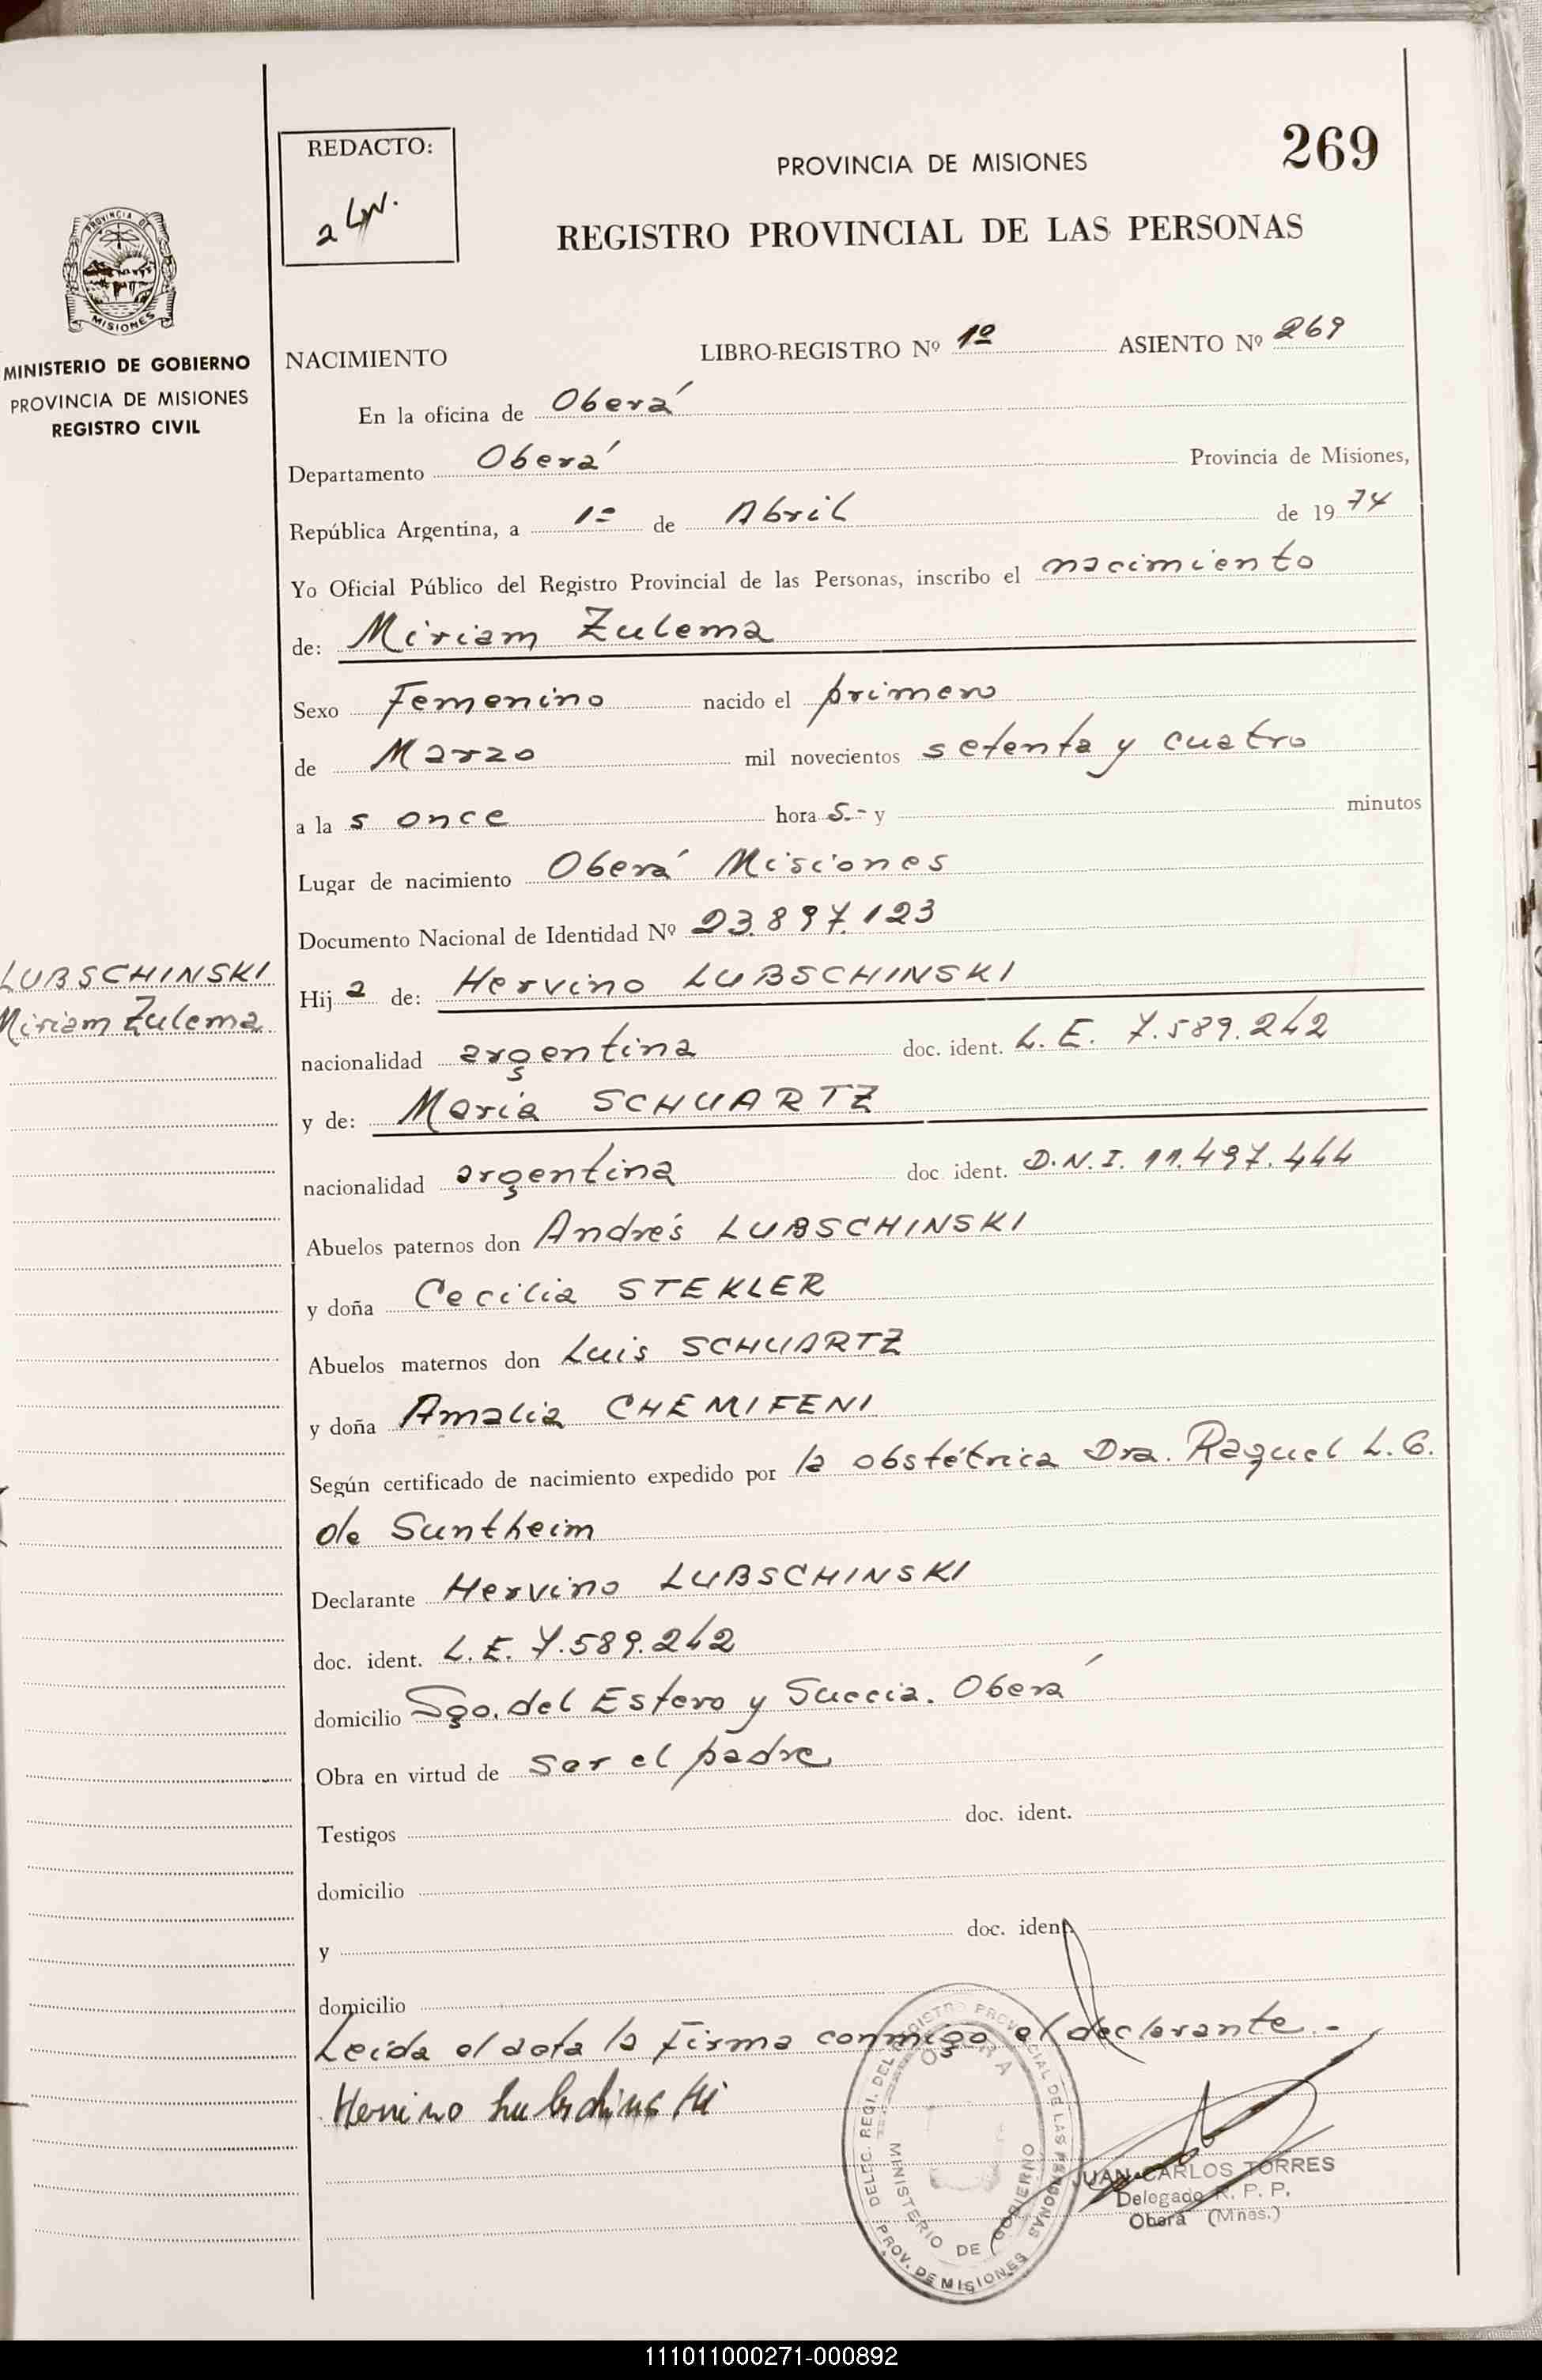 269
REDACTO:
PROVINCIA DE MISIONES
REGISTRO PROVINCIAL DE LAS PERSONAS
PROVINCIA DE
MISIONES
MINISTERIO DE GOBIERNO
PROVINCIA DE MISIONES
REGISTRO CIVIL
NACIMIENTO LIBRO-REGISTRO Nº 1º ASIENTO Nº 269
En la oficina de Oberá
Departamento Oberá Provincia de Misiones,
República Argentina, a 1º de Abril de 1974
Yo Oficial Público del Registro Provincial de las Personas, inscribo el nacimiento
de: Miriam Zulema
Sexo Femenino nacido el primero
de Marzo mil novecientos setenta y cuatro
a la s once hora s.- y minutos
Lugar de nacimiento Oberá Misiones
Documento Nacional de Identidad Nº 23.897.123
LUBSCHINSKI
Miriam Zulema
Hija de: Hervino LUBSCHINSKI
nacionalidad argentina doc. ident. L.E. 7.589.242
y de: Maria SCHUARTZ
nacionalidad argentina doc. ident. D.N.I. 11.497.444
Abuelos paternos don Andrés LUBSCHINSKI
y doña Cecilia STEKLER
Abuelos maternos don Luis SCHUARTZ
y doña Amalia CHEMIFENI
Según certificado de nacimiento expedido por la obstétrica Dra. Raquel L. G.
de Suntheim
Declarante Hervino LUBSCHINSKI
doc. ident. L.E. 7.589.242
domicilio Sgo. del Estero y Suecia. Oberá
Obra en virtud de ser el padre
Testigos doc. ident.
domicilio
y doc. ident.
domicilio
Leida el acta la firma conmigo el declarante.-
Hervino Lubschinski
DELEG. REGI. DEL REGISTRO PROVINCIAL DE LAS PERSONAS
OBERA
MINISTERIO DE GOBIERNO
PROV. DE MISIONES
JUAN CARLOS TORRES
Delegado R. P. P.
Oberá (Mnes.)
111011000271-000892